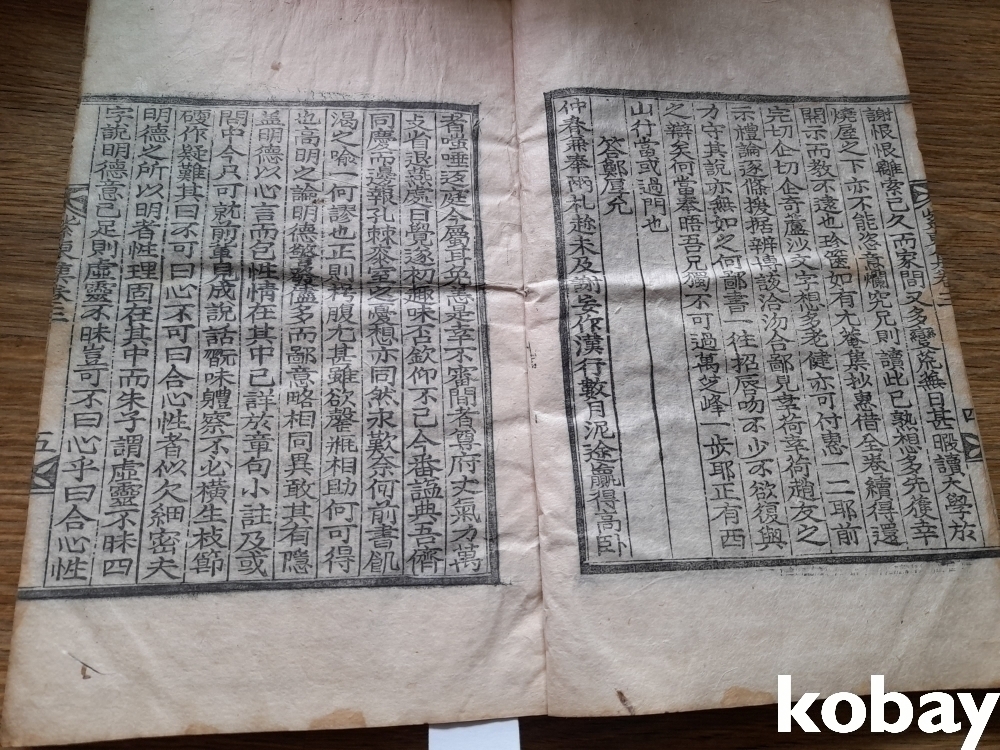 謝恨恨離索已久而家間又多變荒無日甚暇讀大學於
燒屋之下亦不能恣意爛究兄則讀此已熟想多先獲幸
開示而教不逮也珍篋如有尤菴集抄惠借全卷續得還
完切企切企奇蘆沙文字想多老健亦可付惠一二耶前
示禮論逐條援据辨博該洽沕合鄙見幸荷幸荷趙友之
力守其說亦無如之何鄙書一往招唇吻不少不欲復與
之辨矣何當奉晤吾兄獨不可過萬芝峰一步耶正有西
山行當或過門也
答鄭厚允
仲春兼奉兩札趁未及謝妄作漢行數月泥途贏得高臥
者嗤唾汲庭今屬耳免怎是幸不審問者尊府丈氣力萬
支省退燕處日覺遂初趣味否欽仰不已今番謚典吾儕
同慶而邊報孔棘漆室之憂想亦同然永歎奈何前書飢
渴之喻一何謬也正則枵腹尤甚雖欲罄甁相助何可得
也高明之論明德發書儘多而鄙意略相同異敢其有隱
盖明德以心言而包性情在其中已詳於章句小註及或
問中今只可就前輩見成說話翫味軆察不必橫生枝節
硬作疑難其曰不可曰心不可曰合心性者似欠細密夫
明德之所以明者性理固在其中而朱子謂虛靈不昧四
字說明德意已足則虛靈不昧豈可不曰心乎曰合心性
四
五
kobay